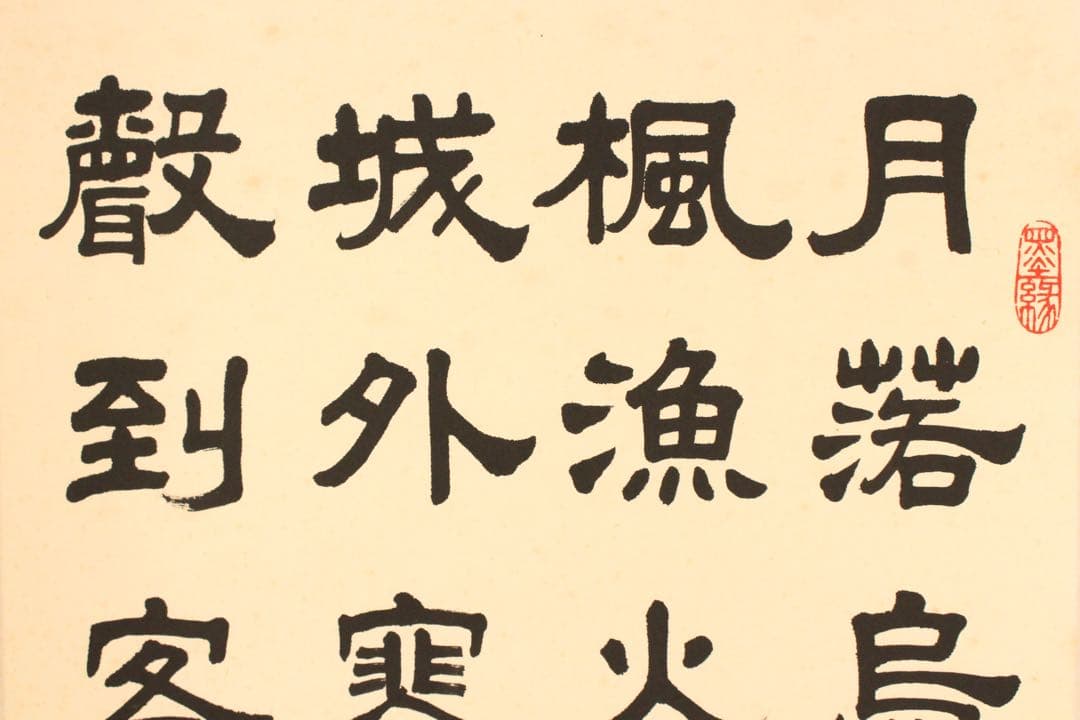 墨緣
月落烏
楓漁火
城外寒
聲到客